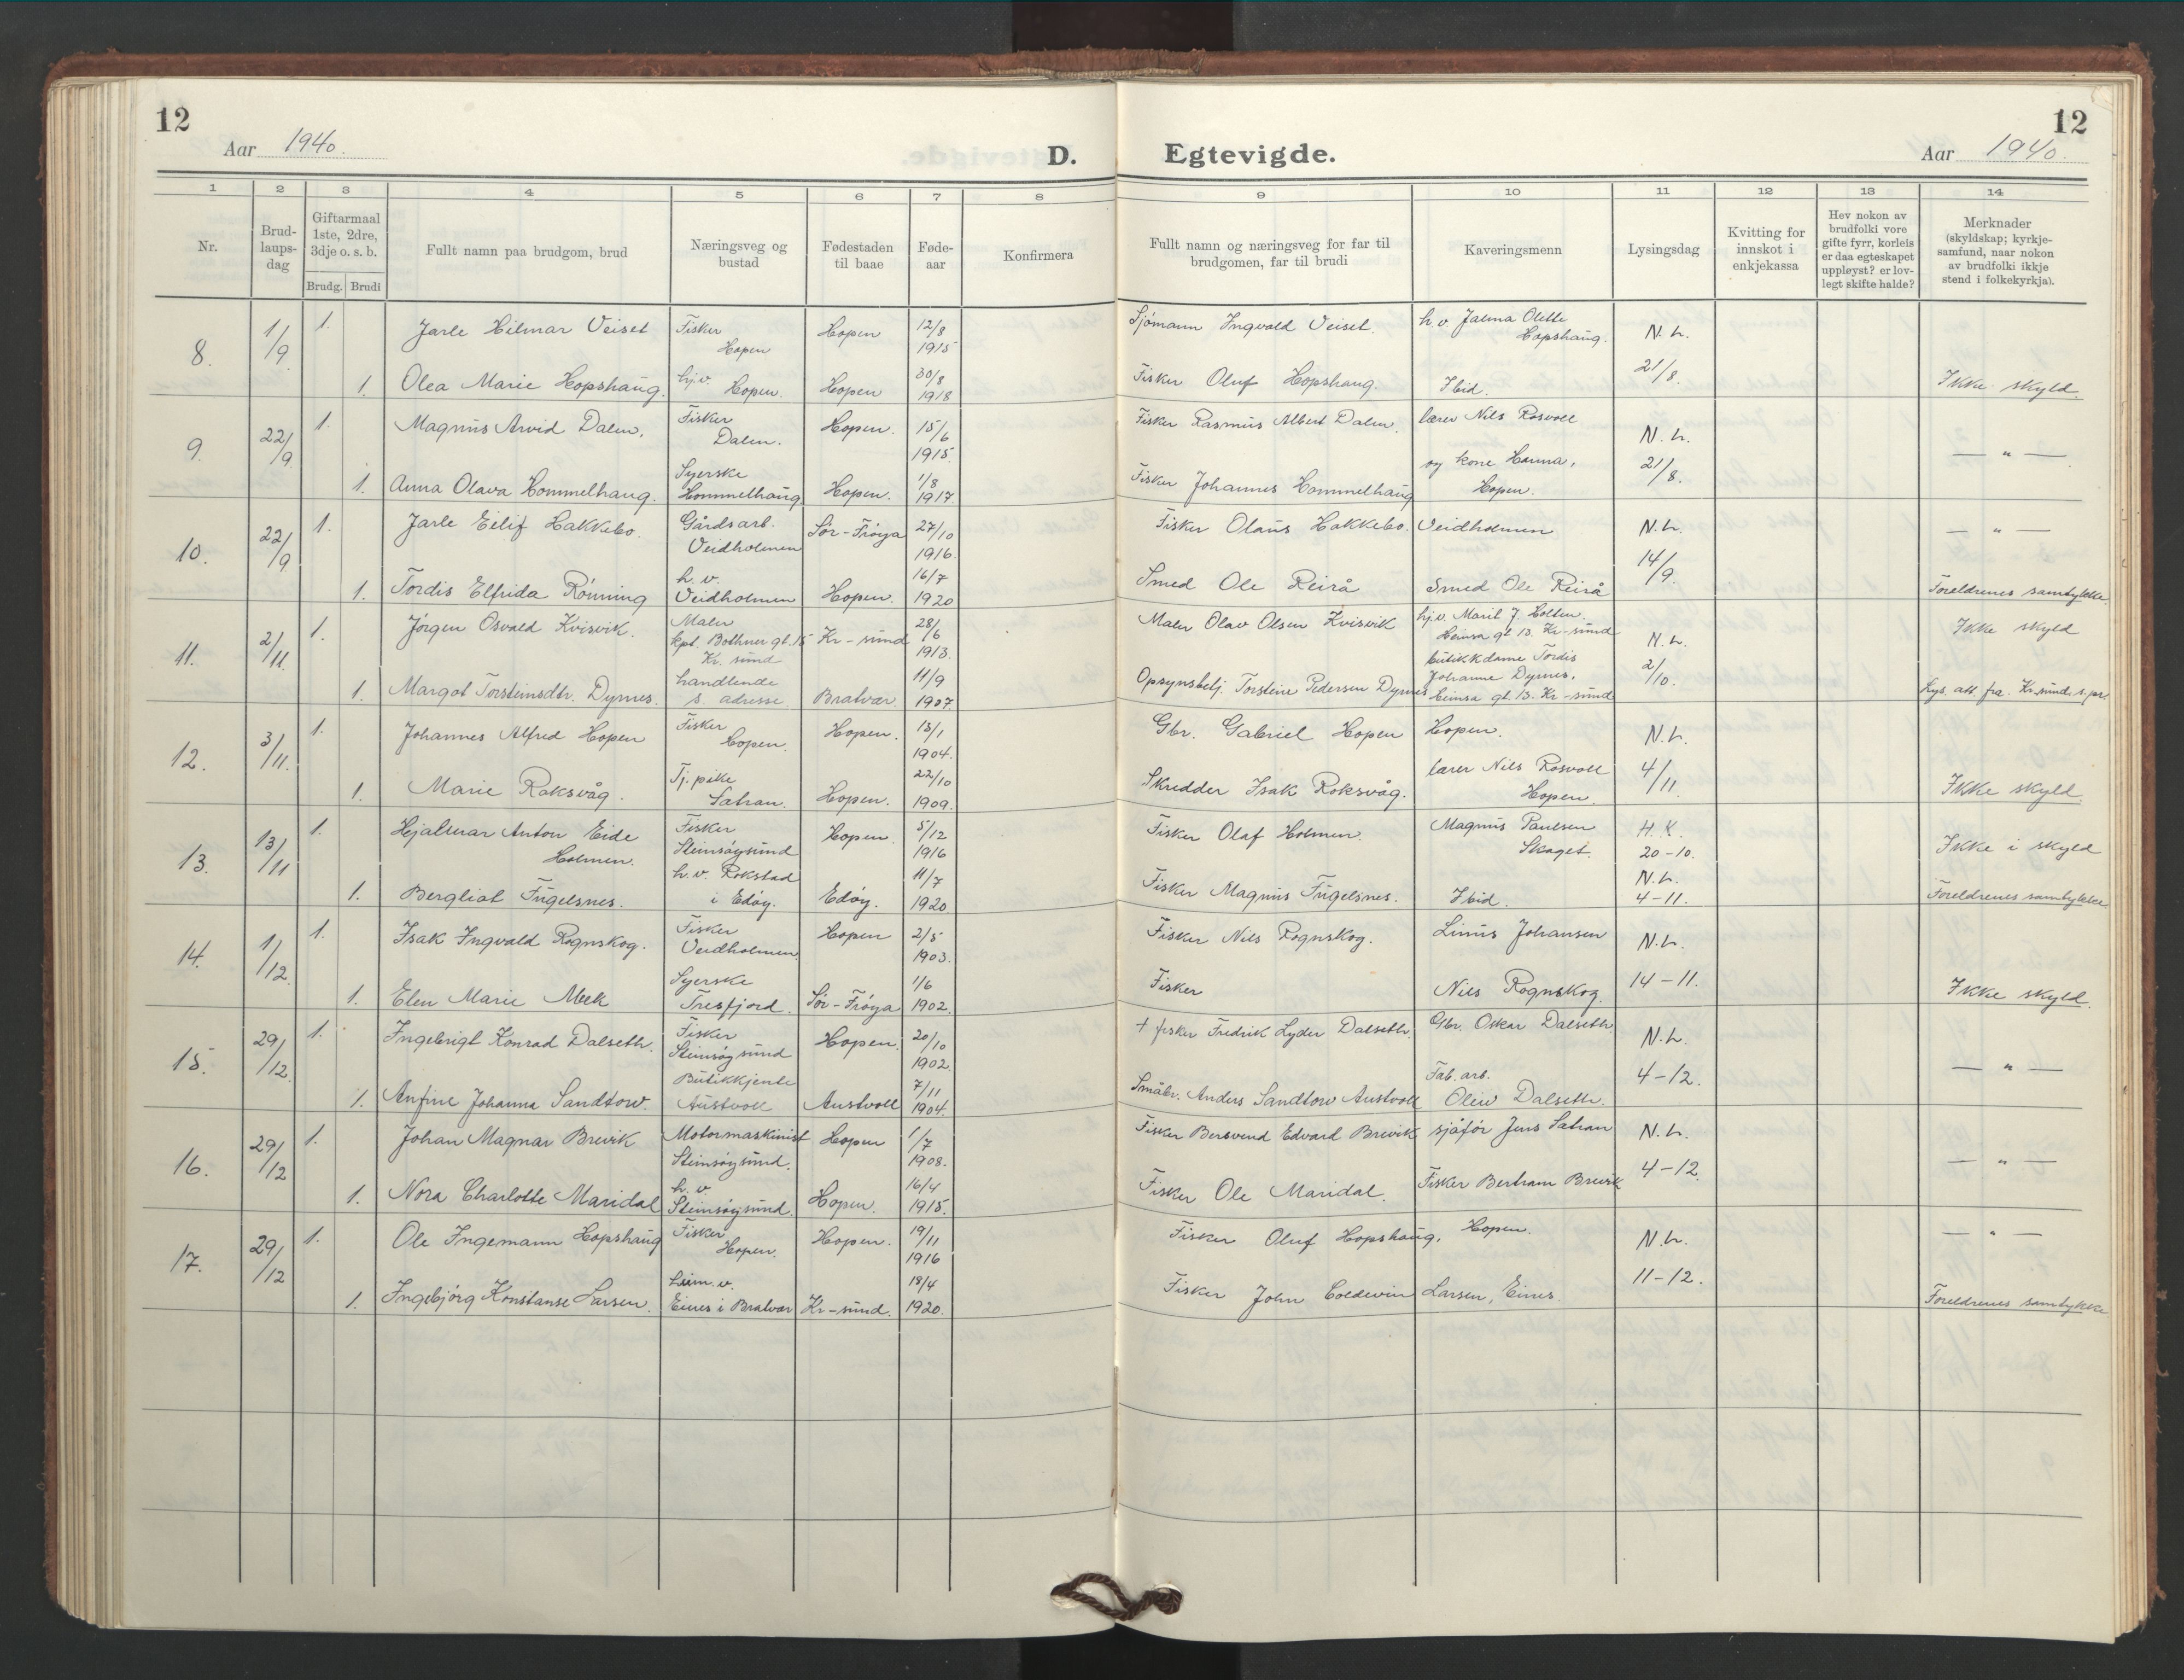 12
Aar 1940.
D.
Egtevigde.
Aar 1940.
12
1 2 3 4 5 6 7 8 9 10 11 12 13 14
Nr.
Brud-
laups-
dag
Giftarmaal
1ste, 2dre,
3dje o. s. b.
Brudg. Brudi
Fullt namn paa brudgom, brud
Næringsveg og
bustad
Fødestaden
til baae
Føde-
aar
Konfirmera
Fullt namn og næringsveg for far til
brudgomen, far til brudi
Kaveringsmenn
Lysingsdag
Kvitting for
innskot i
enkjekassa
Hev nokon av
brudfolki vore
gifte fyrr, korleis
er daa egteskapet
uppløyst? er lov-
legt skifte halde?
Merknader
(skyldskap; kyrkje-
samfund, naar nokon
av brudfolki ikkje
stend i folkekyrkja).
8. 1/9 1. Jarle Hilmar Veiset Fisker Hopen Hopen 12/8 1915 Sjómann Ingvald Veiset. h.v. Jalma Olette Hopshaug. N.L.
1. Olea Marie Hopshaug. hj.v. Hopen. Hopen 30/8 1918 Fisker Oluf Hopshaug. Ibid. 21/8. Ikke skyld.
9. 22/9 1. Magnus Arvid Dalen. Fisker Dalen. Hopen. 15/6 1915. Fisker Rasmus Albert Dalen. lærer Nils Rosvoll N.L. — " —
1. Anna Olava Hommelhaug. Syerske Hommelhaug Hopen. 1/8 1917. Fisker Johannes Hommelhaug og kone Hanna, Hopen. 21/8.
10. 22/9 1. Jarle Eilif Hakkebo. Gårdsarb. Veidholmen Sór-Fróya 27/10 1916. Fisker Olaus Hakkebo. Veidholmen N.L. — " —
1. Tordis Elfrida Rónning h.v. Veidholmen Hopen. 16/7 1920 Smed Ole Reirå Smed Ole Reirå 14/9. Foreldrenes samtykke.
11. 2/11 1. Jórgen Osvald Kvisvik. Maler kpt. Bothner gt. 15 Kr. sund Kr-sund 28/6 1913. Maler Olav Olsen Kvisvik hj.v. Marit J. Holten. Heinsa gt 13. Kr-sund N.L. Ikke skyld
1. Margot Torsteinsdtr. Dyrnes. handlende s. adresse. Bratvær 11/9 1907. Opsynsbetj. Torstein Pedersen Dyrnes butikkdame Tordis Johanne Dyrnes, Heinsa gt. 13. Kr-sund 2/10. Lys. att. fra Kr.sund s.pr.
12. 3/11. 1. Johannes Alfred Hopen Fisker Hopen. Hopen. 13/1 1904. Gbr. Gabriel Hopen Hopen. N.L.
1. Marie Roksvåg. Tj.pike Satran. Hopen. 22/10 1909. Skredder Isak Roksvåg. lærer Nils Rosvoll Hopen. 4/11. Ikke skyld.
13. 13/11 1. Hjalmar Anton Eide Holmen. Fisker Steinsóysund Hopen 5/12 1916 Fisker Olaf Holmen. Magnus Paulsen Skaget. H.K. 20-10. Ikke i skyld
1. Bergliot Fugelsnes. h.v. Rokstad i Edóy. Edóy. 11/7 1920 Fisker Magnus Fugelsnes. Ibid. N.L. 4-11. Foreldrenes samtykke.
14. 1/12. 1. Isak Ingvald Rognskog. Fisker Veidholmen. Hopen 2/5 1903. Fisker Nils Rognskog. Linus Johansen N.L.
1. Elen Marie Meek Syerske Tresfjord. Sór-Fróya 1/6 1902. Fisker Nils Rognskog. 14-11. Ikke skyld.
15. 29/12. 1. Ingebrigt Konrad Dalseth. Fisker Steinsóysund Hopen. 20/10 1902. † fisker Fredrik Lyder Dalseth. Gbr. Oskar Dalseth N.L. — " —
1. Anfine Johanna Sandtorv. Butikkjente Austvoll Austvoll 7/11 1904. Småbr. Anders Sandtorv Austvoll Fab. arb. Oleiv Dalseth. 4-12.
16. 29/12 1. Johan Magnar Brevik Motormaskinist Steinsóysund. Hopen 1/7 1908. Fisker Bersvend Edvard Brevik sjåfór Jens Satran N.L. — " —
1. Nora Charlotte Maridal h.v. Steinsóysund. Hopen. 16/4 1915. Fisker Ole Maridal. Fisker Bertram Brevik 4-12.
17. 29/12 1. Ole Ingemann Hopshaug Fisker Hopen. Hopen. 19/11 1916 Fisker Oluf Hopshaug, Hopen. N.L. — " —
1. Ingebjórg Konstanse Larsen. heim.v. Eines i Bratvær Kr-sund. 18/4 1920. Fisker John Coldevin Larsen, Eines. 11-12. Foreldrenes samtykke